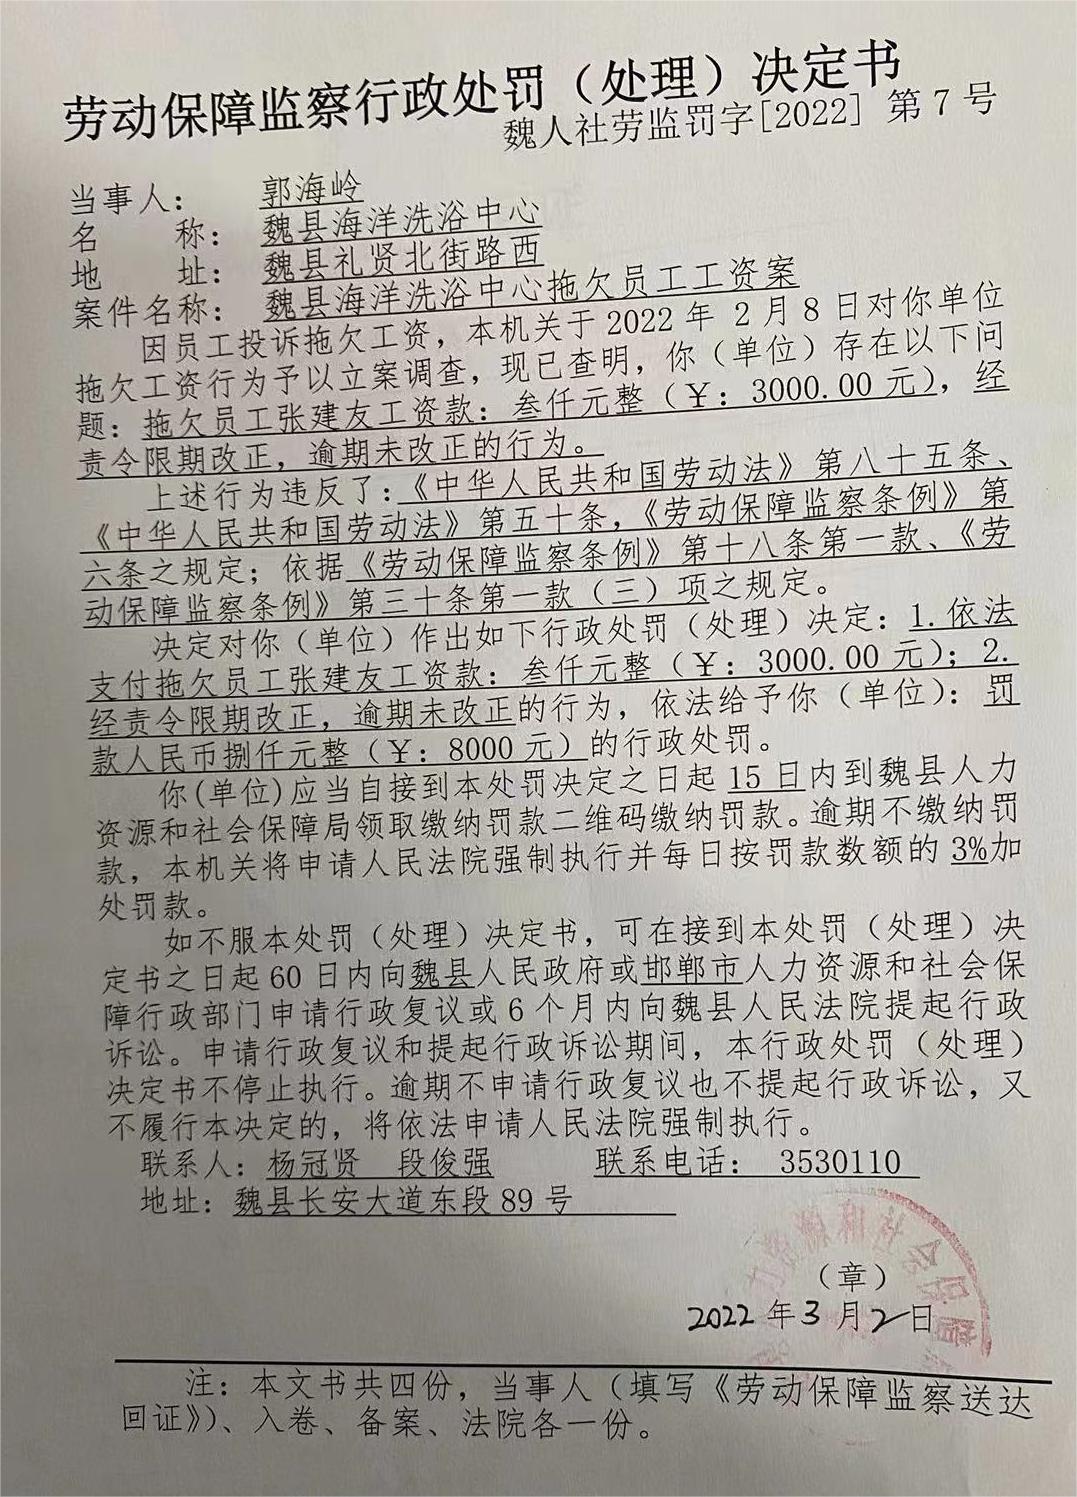 劳动保障监察行政处罚（处理）决定书
魏人社劳监罚字[2022] 第 7 号
当事人： 郭海岭
名 称： 魏县海洋洗浴中心
地 址： 魏县礼贤北街路西
案件名称： 魏县海洋洗浴中心拖欠员工工资案
因员工投诉拖欠工资，本机关于 2022 年 2 月 8 日对你单位
拖欠工资行为予以立案调查，现已查明，你（单位）存在以下问
题：拖欠员工张建友工资款：叁仟元整（￥：3000.00 元），经
责令限期改正，逾期未改正的行为。
上述行为违反了：《中华人民共和国劳动法》第八十五条、
《中华人民共和国劳动法》第五十条，《劳动保障监察条例》第
六条之规定；依据《劳动保障监察条例》第十八条第一款、《劳
动保障监察条例》第三十条第一款（三）项之规定。
决定对你（单位）作出如下行政处罚（处理）决定：1. 依法
支付拖欠员工张建友工资款：叁仟元整（￥：3000.00 元）；2.
经责令限期改正，逾期未改正的行为，依法给予你（单位）：罚
款人民币捌仟元整（￥：8000 元）的行政处罚。
你(单位)应当自接到本处罚决定之日起 15 日内到魏县人力
资源和社会保障局领取缴纳罚款二维码缴纳罚款。逾期不缴纳罚
款，本机关将申请人民法院强制执行并每日按罚款数额的 3%加
处罚款。
如不服本处罚（处理）决定书，可在接到本处罚（处理）决
定书之日起 60 日内向魏县人民政府或邯郸市人力资源和社会保
障行政部门申请行政复议或 6 个月内向魏县人民法院提起行政
诉讼。申请行政复议和提起行政诉讼期间，本行政处罚（处理）
决定书不停止执行。逾期不申请行政复议也不提起行政诉讼，又
不履行本决定的，将依法申请人民法院强制执行。
联系人：杨冠贤 段俊强 联系电话： 3530110
地址：魏县长安大道东段 89 号
（章）
2022 年 3 月 2 日
注：本文书共四份，当事人（填写《劳动保障监察送达
回证》）、入卷、备案、法院各一份。